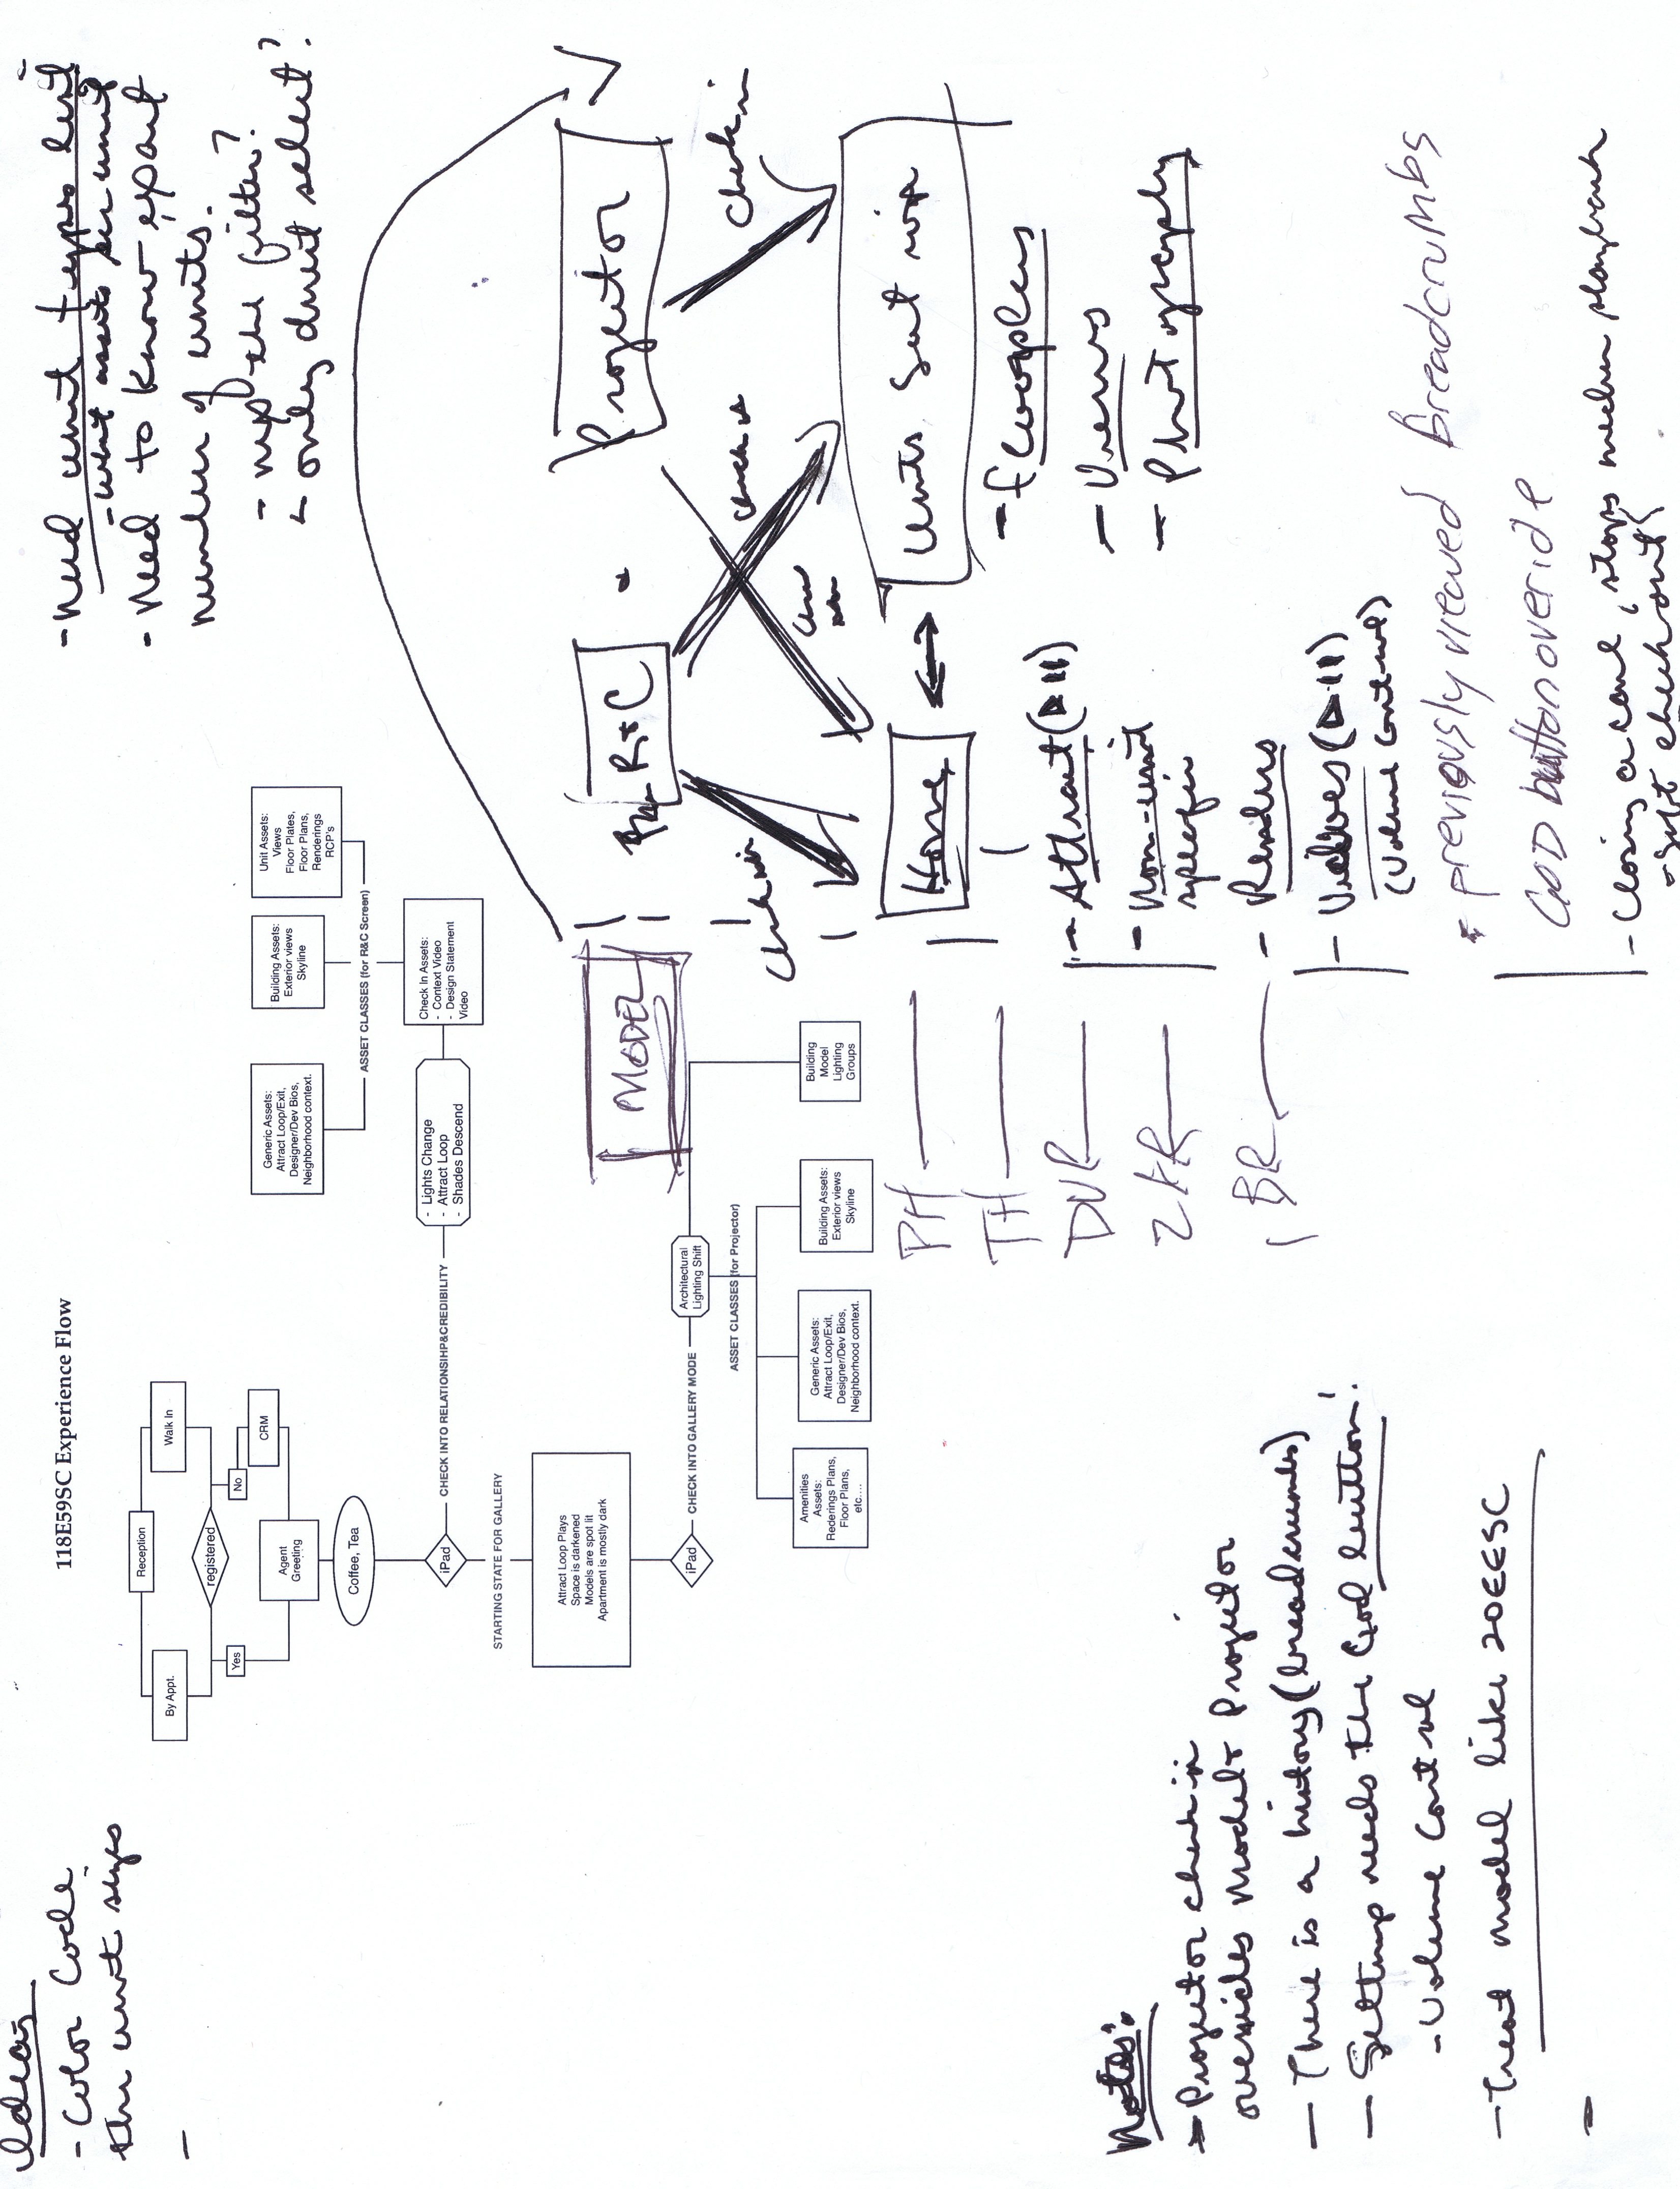 Ideas
- Color Code
the unit sizes
-
118E59SC Experience Flow
Reception
By Appt.
Walk In
registered
Yes
No
CRM
Agent
Greeting
Coffee, Tea
iPad
CHECK INTO RELATIONSIHP&CREDIBILITY
- Lights Change
- Attract Loop
- Shades Descend
Check In Assets:
- Context Video
- Design Statement
Video
ASSET CLASSES (for R&C Screen)
Generic Assets:
Attract Loop/Exit,
Designer/Dev Bios,
Neighborhood context.
Building Assets:
Exterior views
Skyline
Unit Assets:
Views
Floor Plates,
Floor Plans,
Renderings
RCP's
STARTING STATE FOR GALLERY
Attract Loop Plays
Space is darkened
Models are spot lit
Apartment is mostly dark
iPad
CHECK INTO GALLERY MODE
Architectural
Lighting Shift
ASSET CLASSES (for Projector)
Amenities
Assets:
Rederings Plans,
Floor Plans,
etc....
Generic Assets:
Attract Loop/Exit,
Designer/Dev Bios,
Neighborhood context.
Building Assets:
Exterior views
Skyline
Building
Model
Lighting
Groups
- Need unit types list
- what assets per unit
- Need to know exact
number of units.
- the filter?
- only unit select?
MODEL
R+C
Projector
check in
check in
check in
Home
Units
- Attract
- Non-unit
specific
- Renders
- Videos
(Volume Control)
- Floorplans
- Views
- Photography
PH
TH
DUP
2BR
1 BR
* previously viewed Breadcrumbs
GOD button overide
- Closing a card, stops media playback
Notes:
- Projector check in
overrides model & Projector
- There is a history (breadcrumbs)
- Settings needs the God button!
- Volume Control
- Treat model like 20EESC